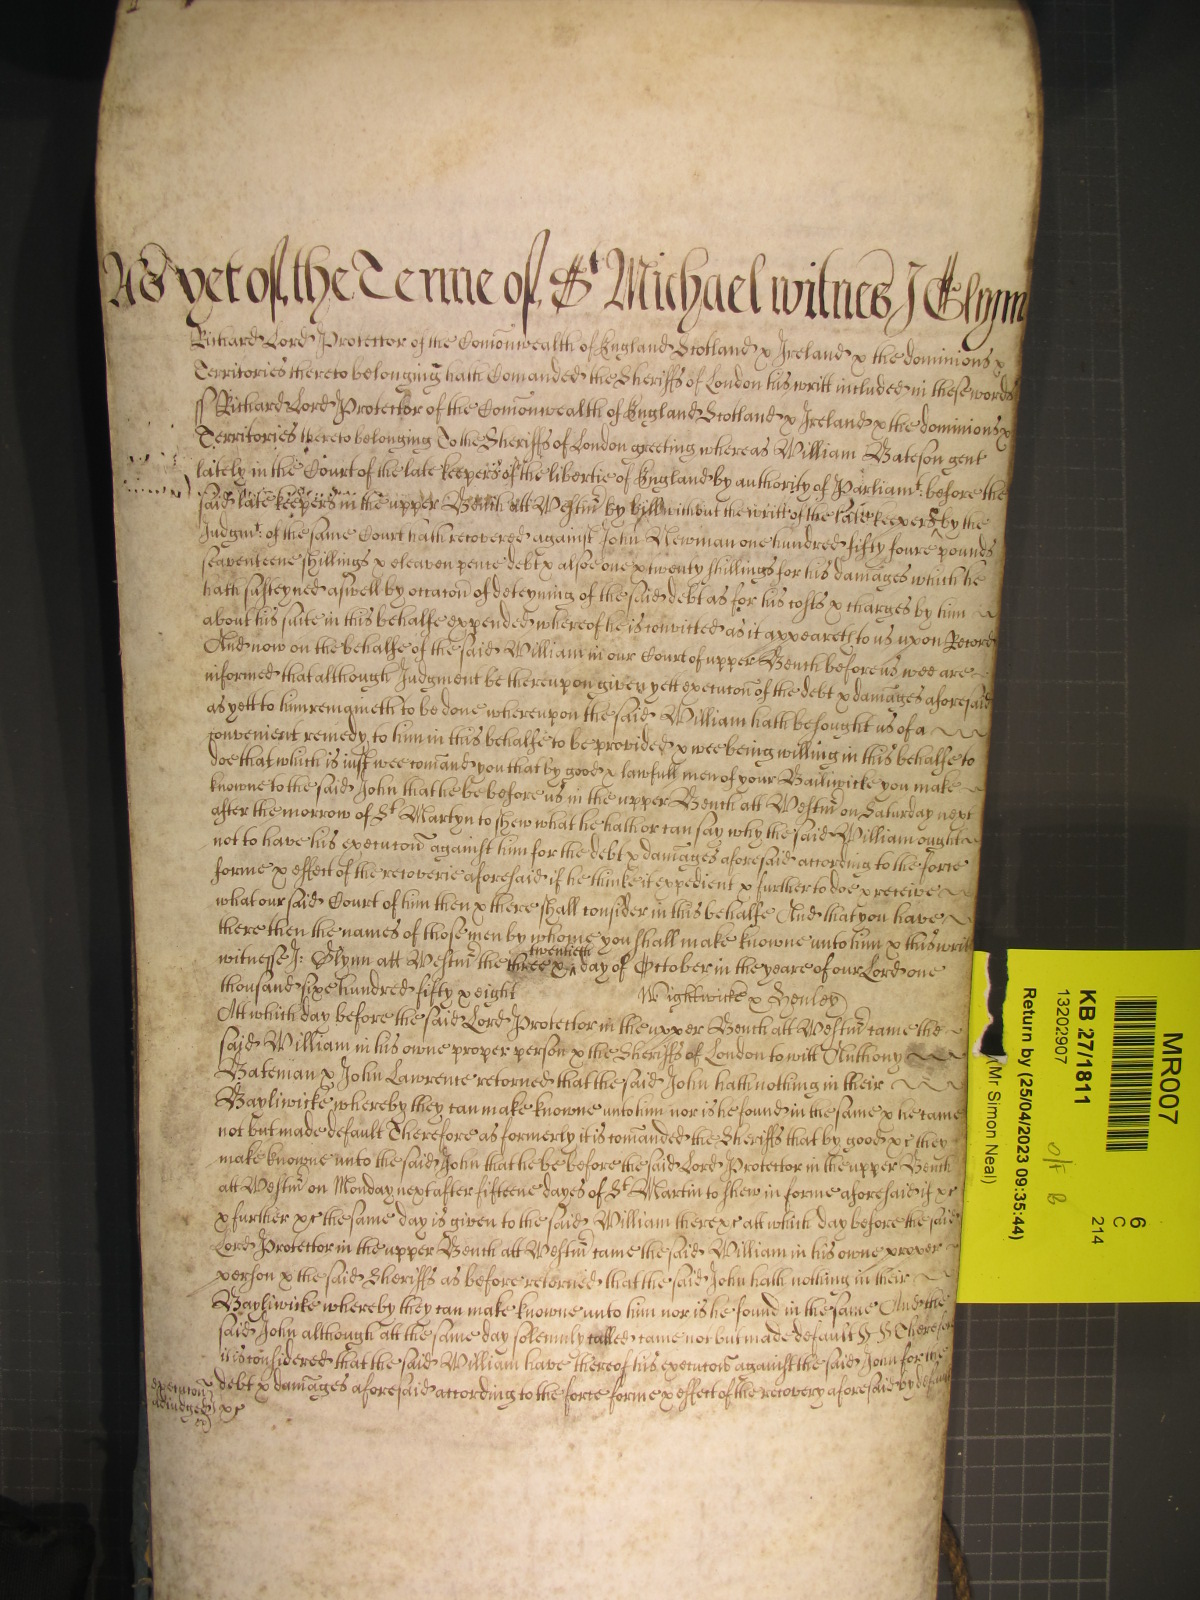 As yet of the Terme of St Michael witnes J Glynn
Richard Lord Protector of the Comonwealth of England Scotland & Ireland & the dominions &
Territories thereto belonging hath Comanded the Sheriffs of London his writt included in these words
ss Richard Lord Protector of the Comonwealth of England Scotland & Ireland & the dominions &
Territories thereto belonging To the Sheriffs of London greeting whereas William Bateson gent
lately in the Court of the late keepers of the libertie of England by authority of Parliamt: before the
said late keepers in the upper Bench att Westmr by bill without the writt of the late keepers by the
Judgmt: of the same Court hath recovered against John Newman one hundred fifty foure pounds
seaventeene shillings & eleaven pence debt & alsoe one & twenty shillings for his damages which he
hath susteyned aswell by occacon of deteyning of the said debt as for his costs & charges by him
about his suite in this behalfe expended whereof he is convicted as it appeareth to us upon Record
And now on the behalfe of the said William in our Court of upper Bench before us wee are
informed that although Judgment be thereupon given yett execucon of the debt & damages aforesaid
as yett to him remaineth to be done whereupon the said William hath besought us of a
convenient remedy to him in this behalfe to be provided & wee being willing in this behalfe to
doe that which is just wee comand you that by good & lawfull men of your Bailiwicke you make
knowne to the said John that he be before us in the upper Bench att Westmr on Saturday next
after the morrow of St Martyn to shew what he hath or can say why the said William ought
not to have his execucon against him for the debt & damages aforesaid according to the force
forme & effect of the recoverie aforesaid if he thinke it expedient & further to doe & receive
what our said Court of him then & there shall consider in this behalfe And that you have
there then the names of those men by whome you shall make knowne unto him & this writt
witnesse J: Glynn att Westmr the three & twentieth day of October in the yeare of our Lord one
thousand sixe hundred fifty & eight Wightwicke & Henley
Att which day before the said Lord Protector in the upper Bench att Westmr came the
said William in his owne proper person & the Sheriffs of London to witt Anthony
Bateman & John Lawrence retorned that the said John hath nothing in their
Bayliwicke whereby they can make knowne unto him nor is he found in the same & he came
not but made default Therefore as formerly it is comanded the Sheriffs that by good &c they
make knowne unto the said John that he be before the said Lord Protector in the upper Bench
att Westmr on Monday next after fifteene dayes of St Martin to shew in forme aforesaid if &c
& further &c the same day is given to the said William there &c att which day before the said
Lord Protector in the upper Bench att Westmr came the said William in his owne proper
person & the said Sheriffs as before retorned that the said John hath nothing in their
Bayliwicke whereby they can make knowne unto him nor is he found in the same And the
said John although att the same day solemnly called came not but made default Therefore
it is considered that the said William have thereof his execucon against the said John for the
debt & damages aforesaid according to the force forme & effect of the recovery aforesaid by default
&c
execucon
adiudged
MR007
6
C
214
KB 27/1811
13202907
Return by (25/04/2023 09:35:44)
(Mr Simon Neal)